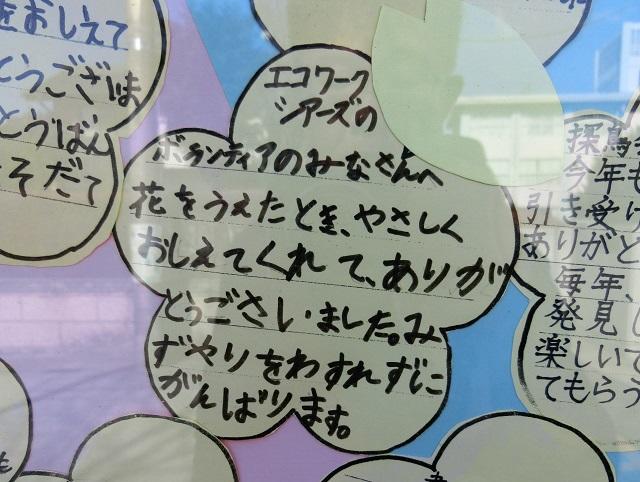 をおしえて
とうござい
とうばん
そだて
エコワーク
シアーズの
ボランティアのみなさんへ
花をうえたとき、やさしく
おしえてくれて、ありが
とうございました。み
ずやりをわすれずに
がんばります。
探鳥会
今年も
引き受け
ありがと
毎年、
発見し
楽しいで
てもらう